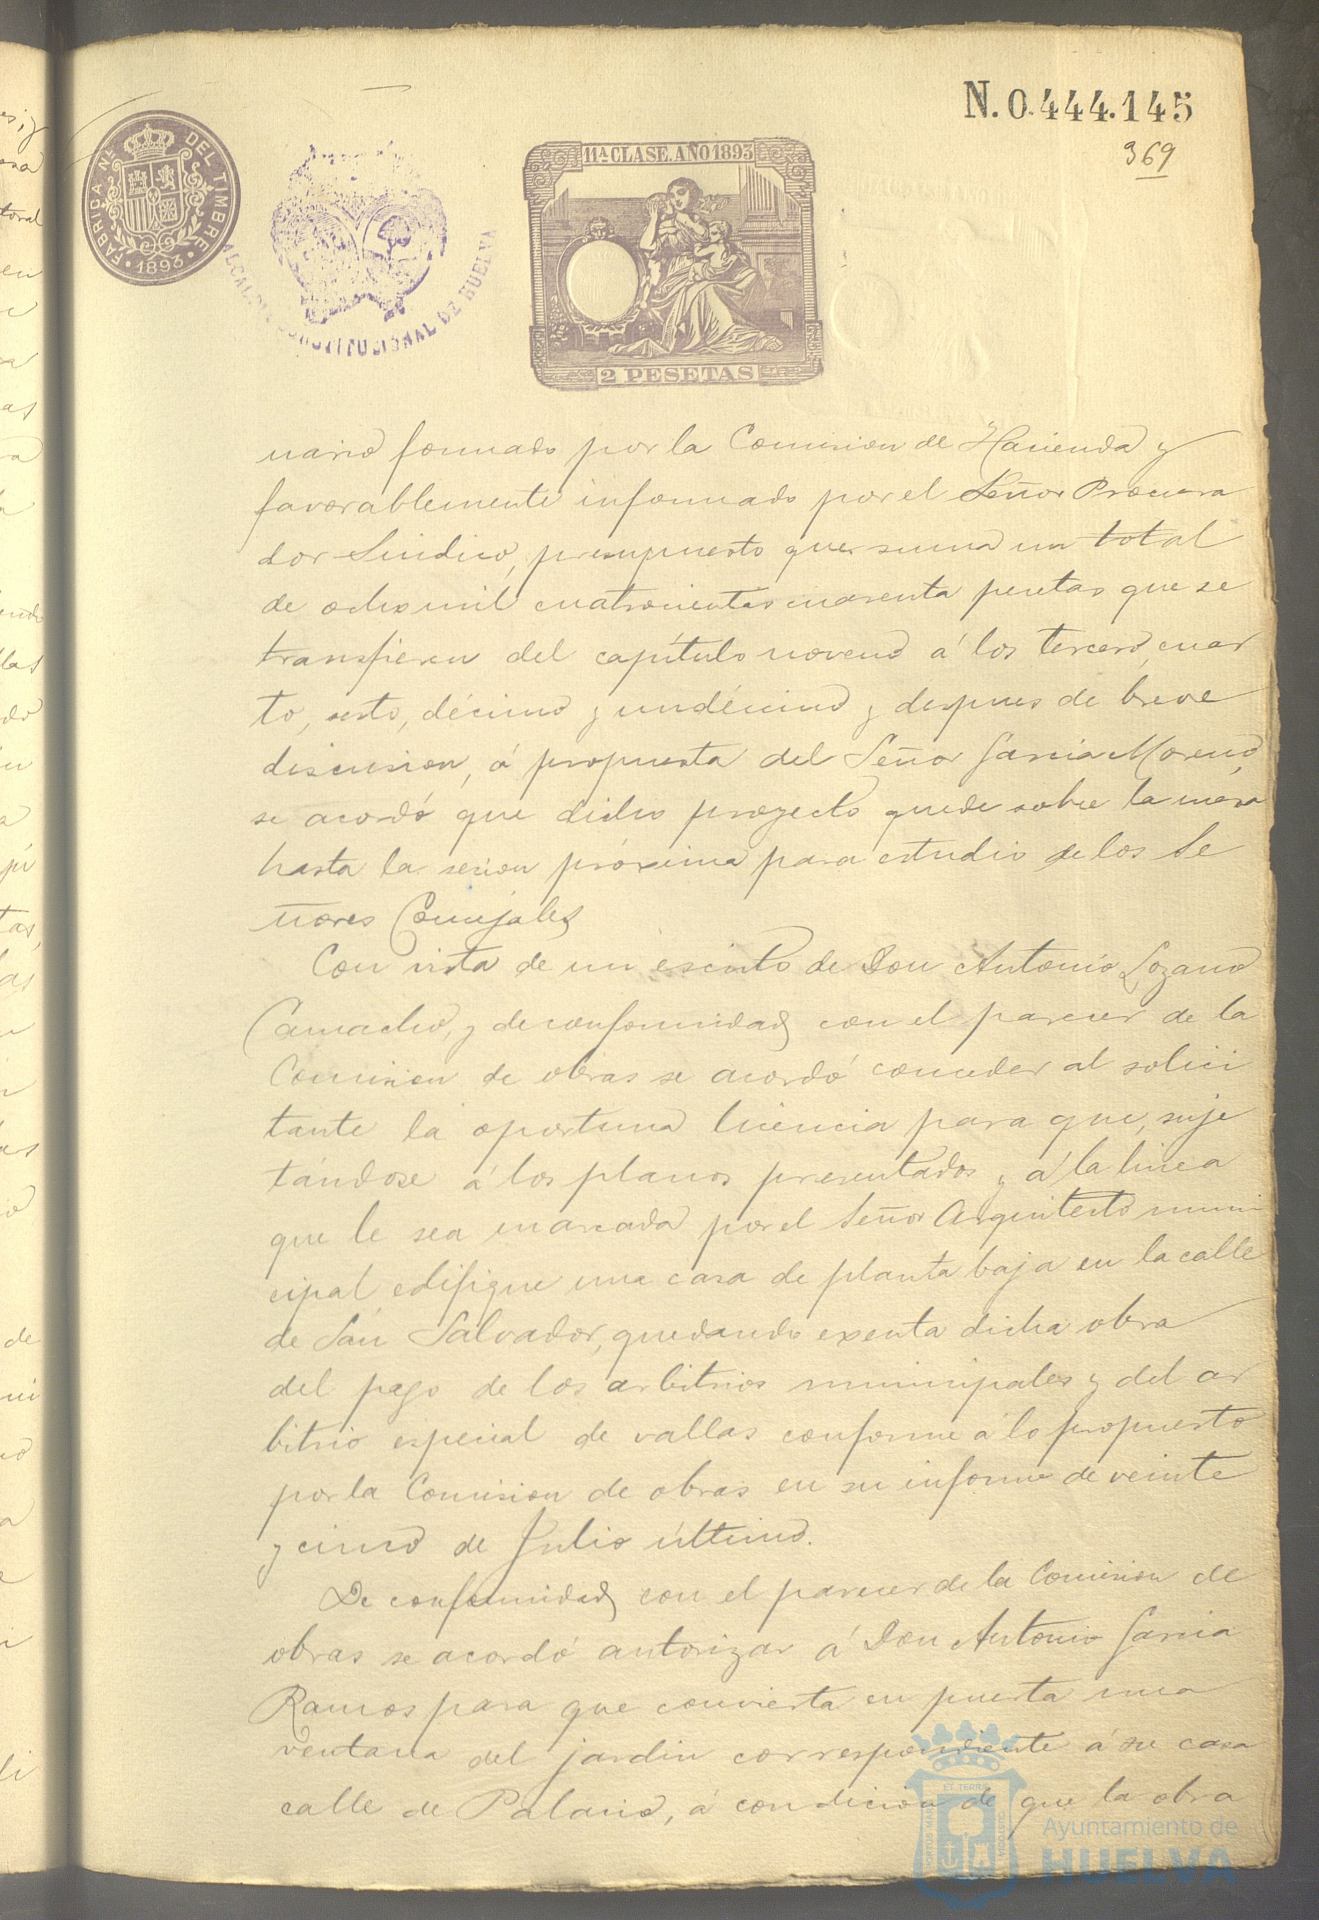 N. 0.444.145
369
FABRICA NL. DEL TIMBRE
1893
ALCALDIA CONSTITUCIONAL DE HUELVA
11ª CLASE. AÑO 1893
2 PESETAS
nario formado por la Comision de Hacienda y
favorablemente informado por el Señor Procura
dor Sindico, presupuesto que suma un total
de ocho mil cuatrocientas cuarenta pesetas que se
transfieren del capítulo noveno á los tercero, cuar
to, sesto, décimo y undécimo y despues de breve
discusion, á propuesta del Señor Garcia Moreno,
se acordó que dicho proyecto quede sobre la mesa
hasta la sesion próxima para estudio de los Se
ñores Concejales
Con vista de un escrito de Don Antonio Lozano
Camacho, y de conformidad con el parecer de la
Comision de obras se acordó conceder al solici
tante la oportuna licencia para que, suje
tándose á los planos presentados y á la linea
que le sea marcada por el Señor Arquitecto muni
cipal, edifique una casa de planta baja en la calle
de San Salvador, quedando exenta dicha obra
del pago de los arbitrios municipales y del ar
bitrio especial de vallas conforme á lo propuesto
por la Comision de obras en su informe de veinte
y cinco de Julio último.
De conformidad con el parecer de la Comision de
obras se acordó autorizar á Don Antonio Garcia
Ramos para que convierta en puerta una
ventana del jardin correspondiente á su casa
calle de Palacio, á condicion de que la obra
Ayuntamiento de
HUELVA